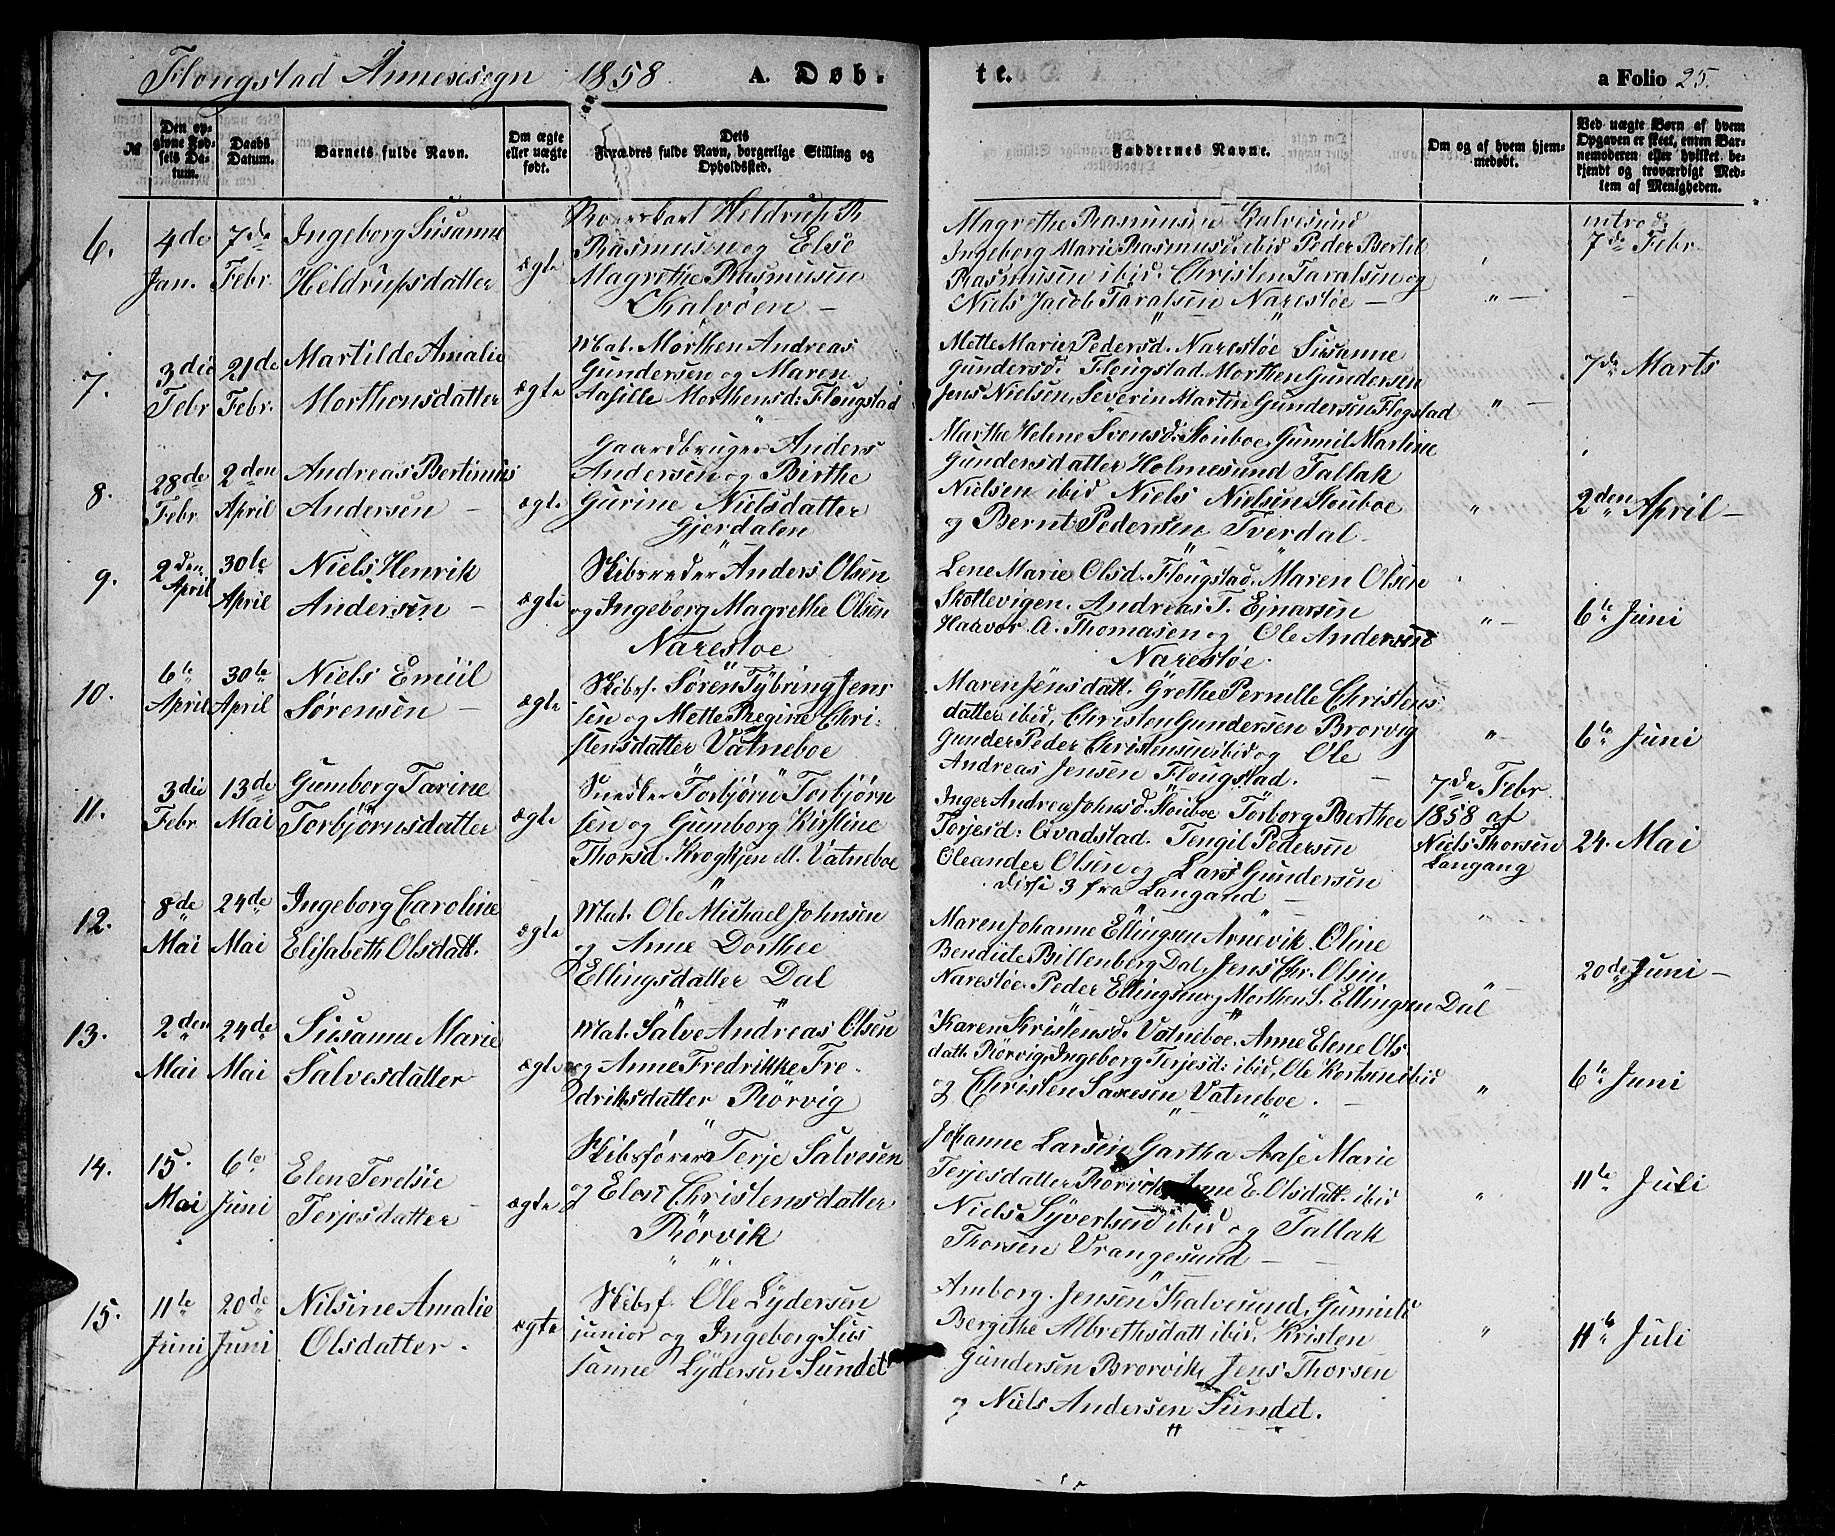 Flougstad Annexsogn 1858. A. Døb-
te. a Folio 25.
№
Den op-
givne Fød-
sels Da-
tum.
Daabs
Datum.
Barnets fulde Navn.
Om ægte
eller uægte
født.
Dets
Forældres fulde Navn, borgerlige Stilling og
Opholdssted.
Faddernes Navne.
Om og af hvem hjem-
medøbt.
Ved uægte Børn af hvem
Opgaven er skeet, enten Bar-
nemoderen eller hvilket be-
kjendt og troværdigt Med-
lem af Menigheden.
6.
4de
Jan.
7de
Febr.
Ingeborg Susanne
Heldrupsdatter
ægte
Heldrup R.
Rasmusen og Else
Magrethe Rasmusen
Kalvøen —
Magrethe Rasmusen Kalvesund
Ingeborg Marie Rasmusd. ibid Peder Bertel
Rasmusen ibid. Christen Taralsen og
Niels Jacob Taralsen Narestøe —
" —
introd.
7de Febr.
7.
3die
Febr
21de
Febr.
Martilde Amalie
Morthensdatter
ægte
Mat. Morthen Andreas
Gundersen og Maren
Aasille Morthensd: Flougstad
Mette Marie Pedersd. Narestøe Susanne
Gundersd. Flougstad. Morthen Gundersen
Jens Nielsen, Severin Martin Gundersen Flogstad
" —
7de Marts
8.
28de
Febr.
2den
April
Andreas Bertinius
Andersen —
ægte
Gaardbruger Anders
Andersen og Birthe
Gurine Nielsdatter
Gjerdalen
Marthe Helene Svensd. Stouboe, Gunnil Martine
Gundersdatter Holmesund Tallak
Nielsen ibid Niels Nielsen Stouboe
og Bernt Pedersen Tverdal.
"
2den April —
9.
2den
April
30te
April
Niels Henrik
Andersen —
ægte
Skibsreder Anders Olsen
og Ingeborg Magrethe Olsen
Narestoe
Lene Marie Olsd. Flougstad. Maren Olsen
Skottevigen. Andreas T. Ejnarsen
Haavor A. Thomasen og Ole Andersen
Narestøe.
" —
6te Juni
10.
6te
April
30te
April
Niels Emiil
Sørensen —
ægte
Skibsf. Søren Tybring Jens
sen og Mette Regine Chri-
stensdatter Vatneboe
Maren Jensdatt. Grethe Pernille Christens
datter ibid, Christen Gundersen Brorvig
Gunder Peder Christensen ibid og Ole
Andreas Jensen Flougstad.
" —
6te Juni
11.
3die
Febr
13de
Mai
Gumborg Tarine
Torbjørnsdatter
ægte
Snedker Torbjørn Torbjørn
sen og Gumborg Kirstine
Thorsd. Krogkjen M. Vatneboe
Inger Andrea Johnsd. Stouboe Torborg Berthee
Torjesd: Qvadstad. Tengil Pedersen
Oleander Olsen og Lars Gundersen
disse 3 fra Langand —
7de Febr.
1858 af
Niels Thorsen
Langang
24. Mai
12.
8de
Mai
24de
Mai
Ingeborg Caroline
Elisabeth Olsdatt.
ægte
Mat. Ole Michael Johnsen
og Anne Dorthee
Ellingsdatter Dal
Maren Johanne Ellingsen Arnevik. Oline
Bendicte Billenberg Dal, Jens Chr. Olsen
Narestøe. Peder Ellingsen og Morthen S. Ellingsen Dal
"
20de Juni —
13.
2den
Mai
24de
Mai
Susanne Marie
Salvesdatter
ægte
Mat. Salve Andreas Olsen
og Anne Fredrikke Fre-
driksdatter Rörvig
Karen Kristensd. Vatneboe. Anne Elene Ols
datt. Rörvig, Ingeborg Terjesd: ibid, Ole Kortsen ibid
og Christen Saxesen Vatneboe. —
"
6te Juni
14.
15.
Mai
6te
Juni
Elen Terelsie
Terjesdatter —
ægte
Skibsfører Terje Salvesen
og Elen Christensdatter
Rörvik
Johanne Larsen Gartha Aase Marie
Terjesdatter Rörvik, Anne E. Olsdatt. ibid
Niels Syvertsen ibid og Tallak
Thorsen Vrangesund —
"
11te Juli
15.
11te
Juni
20de
Juni
Nilsine Amalie
Olsdatter.
ægte
Skibsf. Ole Lydersen
junior og Ingeborg Sus
sanne Lydersen Sundet
Amborg. Jensen Kalvesund, Gunnild
Bergithe Albrethsdatt ibid. Kristen
Gundersen Brorvik, Jens Thorsen
og Niels Andersen Sundet.
"
11te Juli